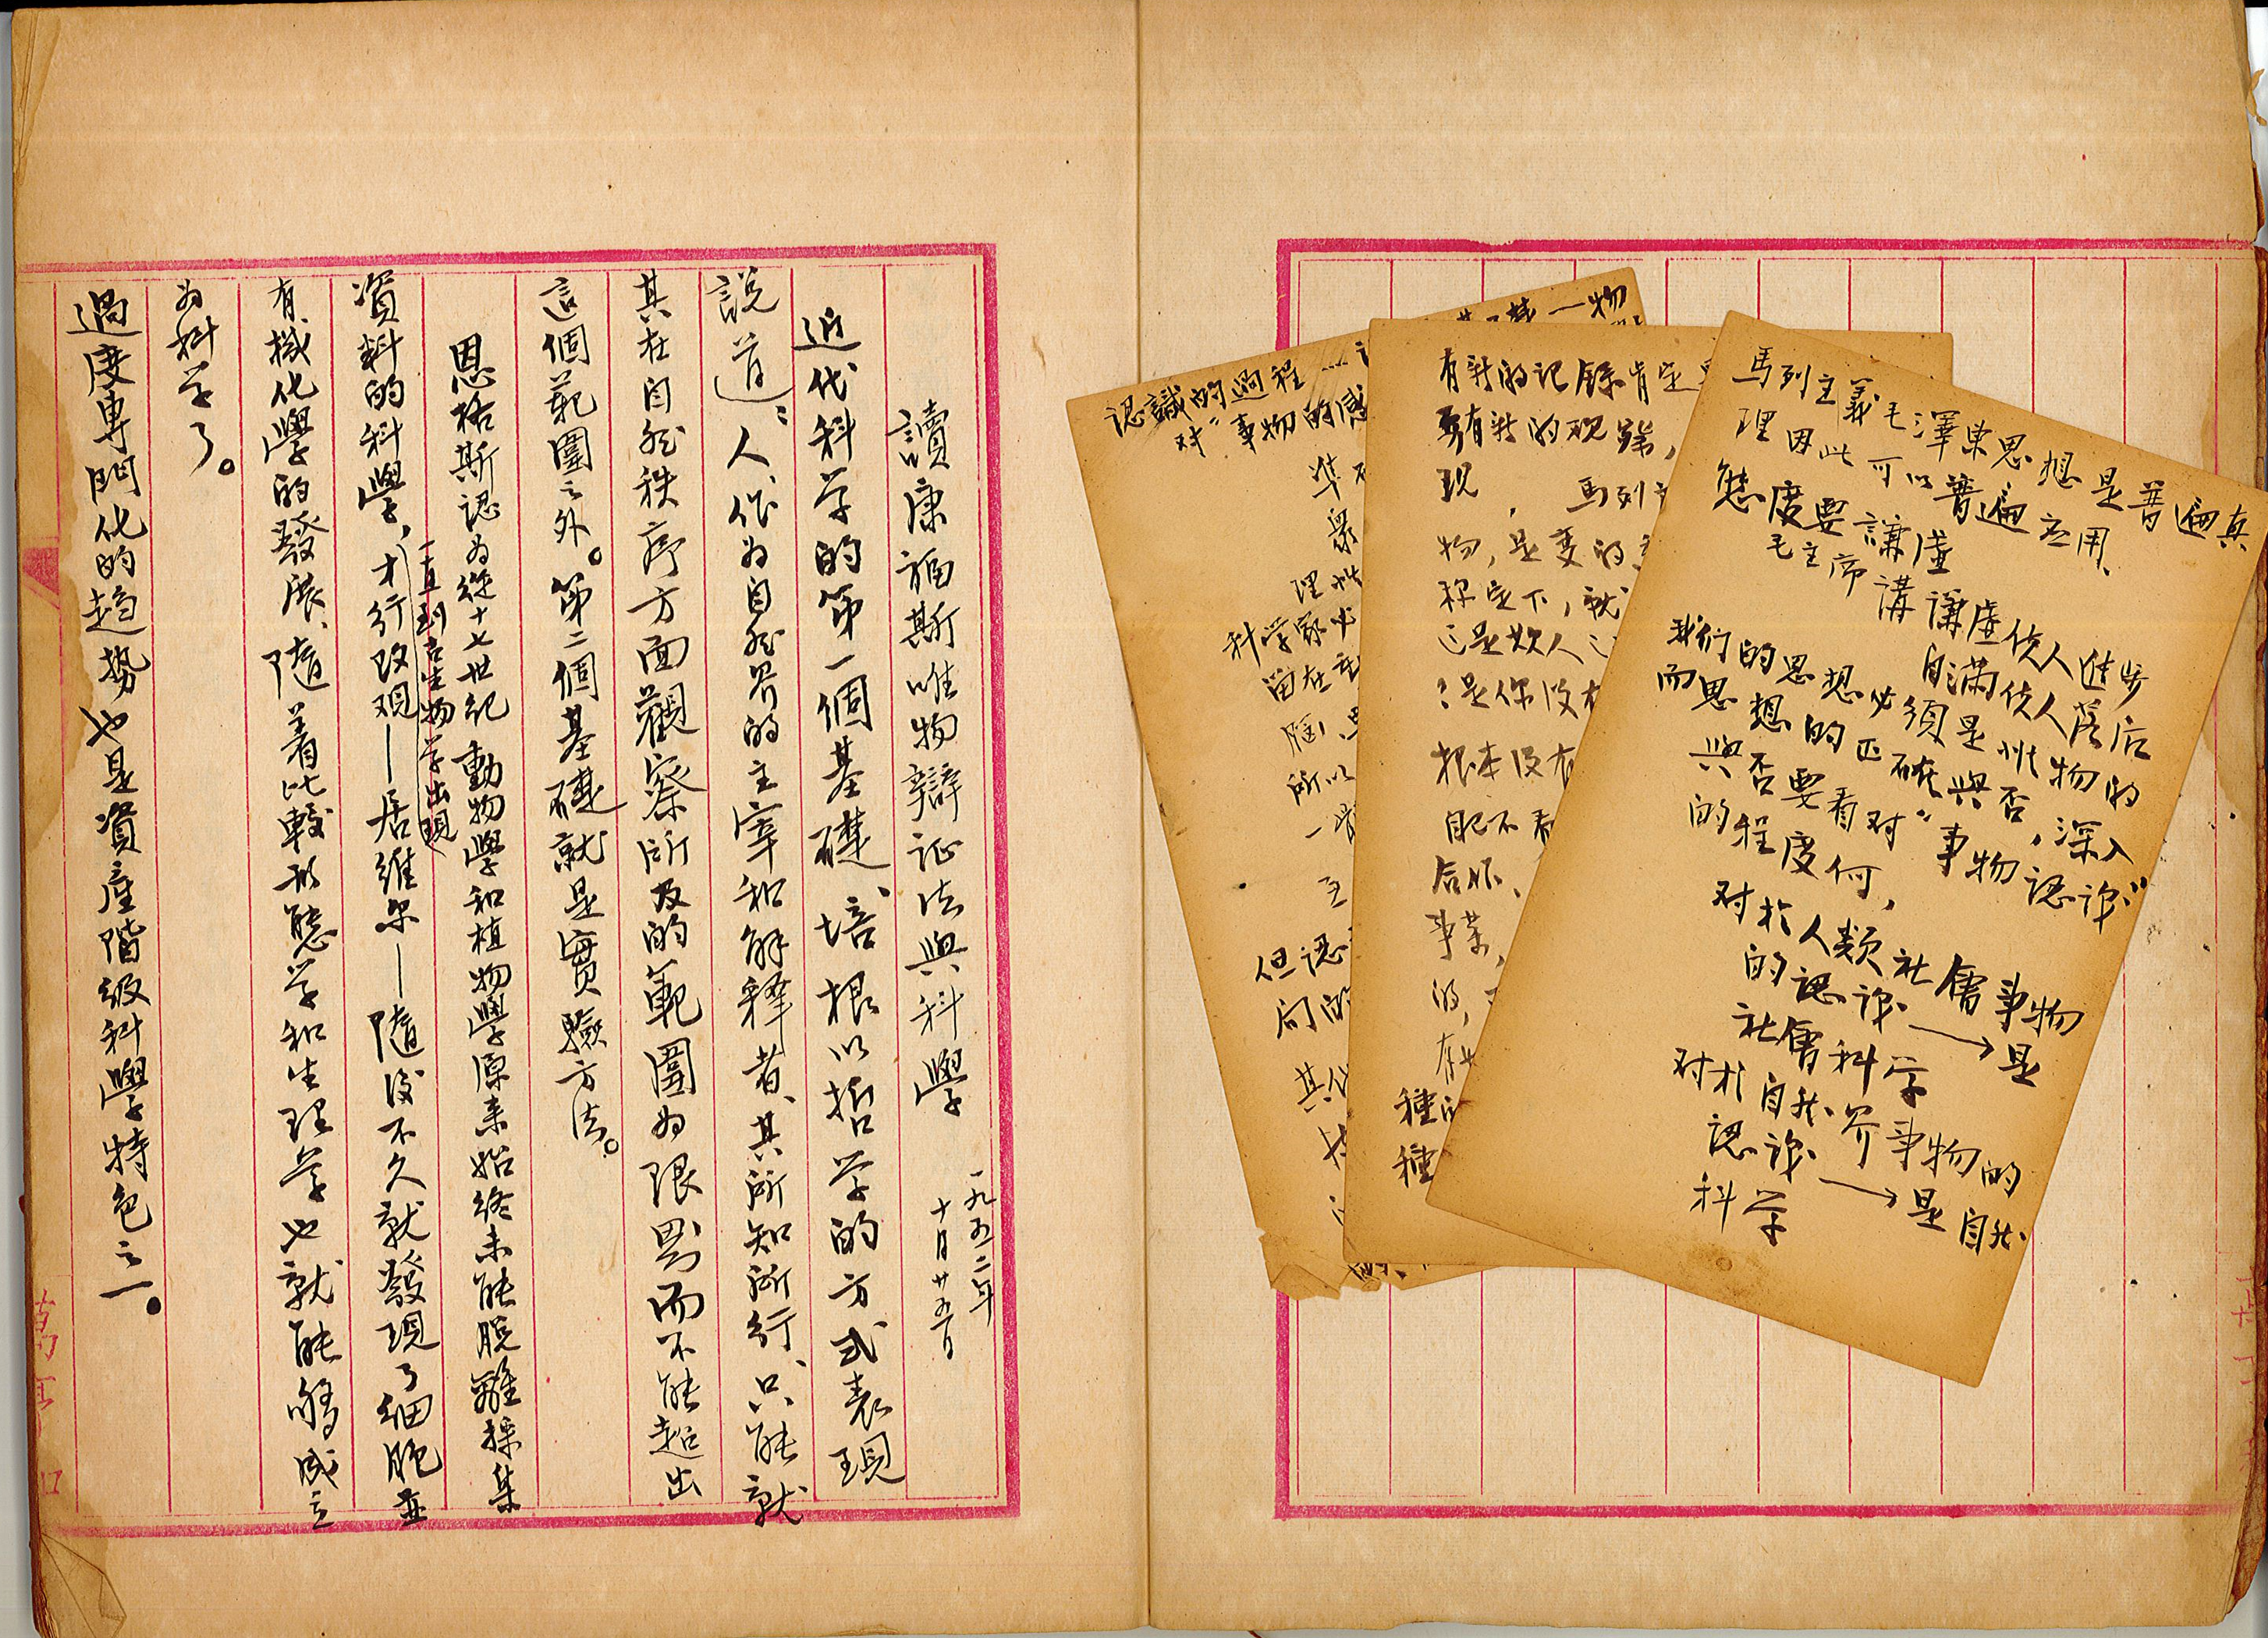 讀康福斯唯物辯证法與科學
一九五二年
十月廿五日
近代科学的第一個基礎、培根以哲学的方式表現
說道：人、作为自然界的主宰和解释者、其所知所行、只能就
其在自然秩序方面觀察所及的範圍为限界而不能超出
這個範圍之外。第二個基礎就是實驗方法。
恩格斯認为從十七世紀動物學和植物學原来始終未能脫離採集
資料的科學，才行改观—居維尔—隨後不久就發現了細胞並
一直到古生物学出現
有機化學的發展、隨着比較形態学和生理学也就能够成立
为科学了。
過度専門化的趋势也是資產階級科學特色之一。
認識的過程……
对"事物的感
準
眾
理性
科学家必
留在
腦
所以
一
主
但認
向的
其他
有新的记錄肯定
有新的现䇲，
现，馬列主
物，是变的
称定下，就
是欺人
是你没有
根本没有
自己不看
合作、
事業，
的，
存
種的
種
馬列主義毛澤東思想是普遍真
理因此可以普遍应用、
態度要謙虛
毛主席講謙虛使人進步
自满使人落后
我们的思想必須是唯物的
而思想的正确與否，深入
與否要看对"事物認识"
的程度何，
对於人類社會事物
的認识→是
社會科学
对於自然界事物的
認识→是自然
科学